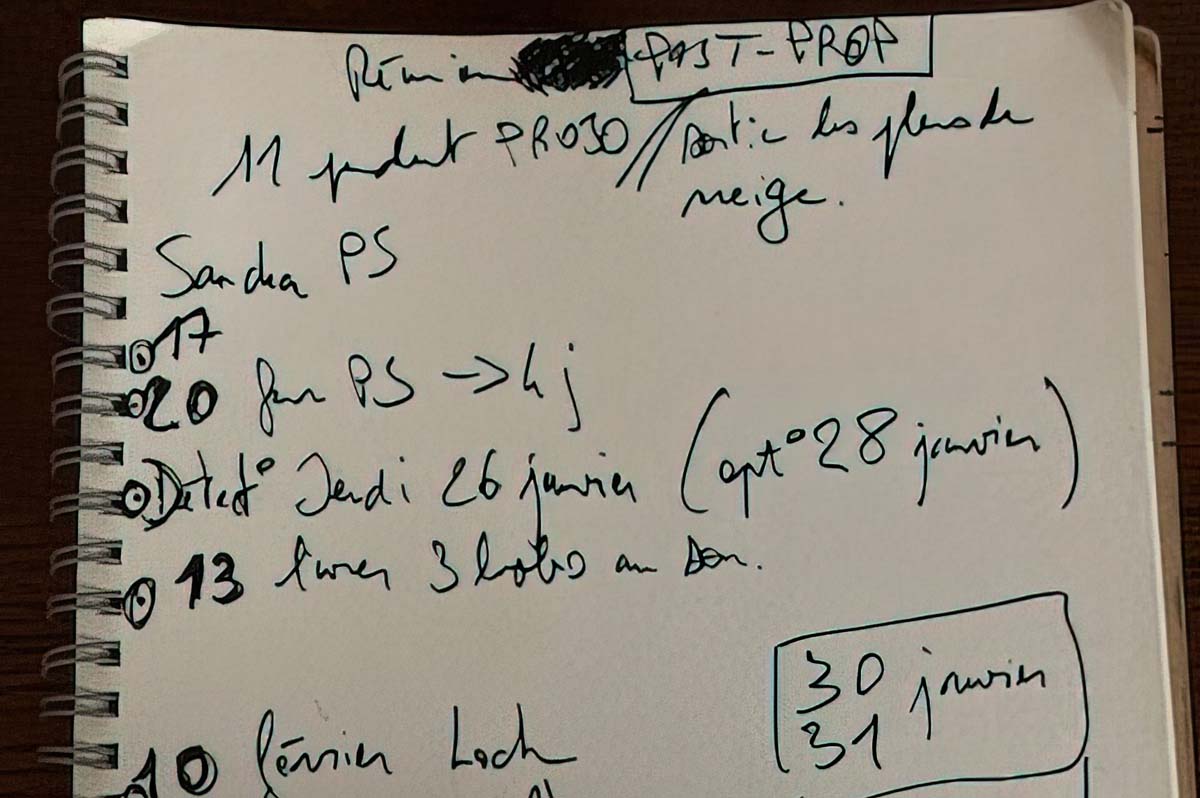 Réunion POST-PROD
11 pendant PRO30 // sortie les plans de
neige.
Sandra PS
17
20 fin PS → 4 j
Détect° Jeudi 26 janvier (opt° 28 janvier)
13 livrer 3 bobs au son.
30 janvier
31
10 février Lock